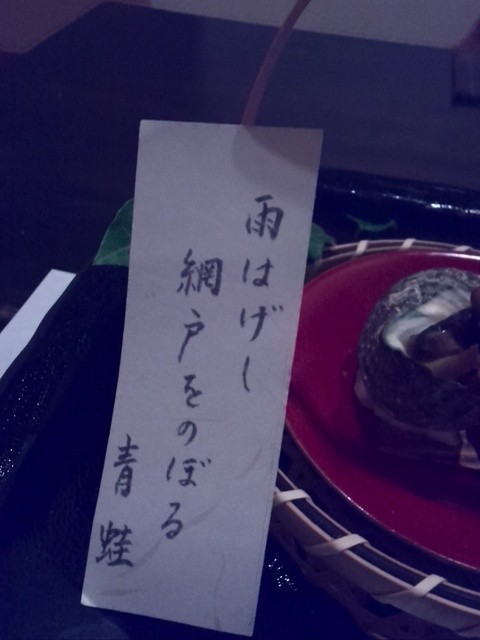 雨はげし
網戸をのぼる
青蛙